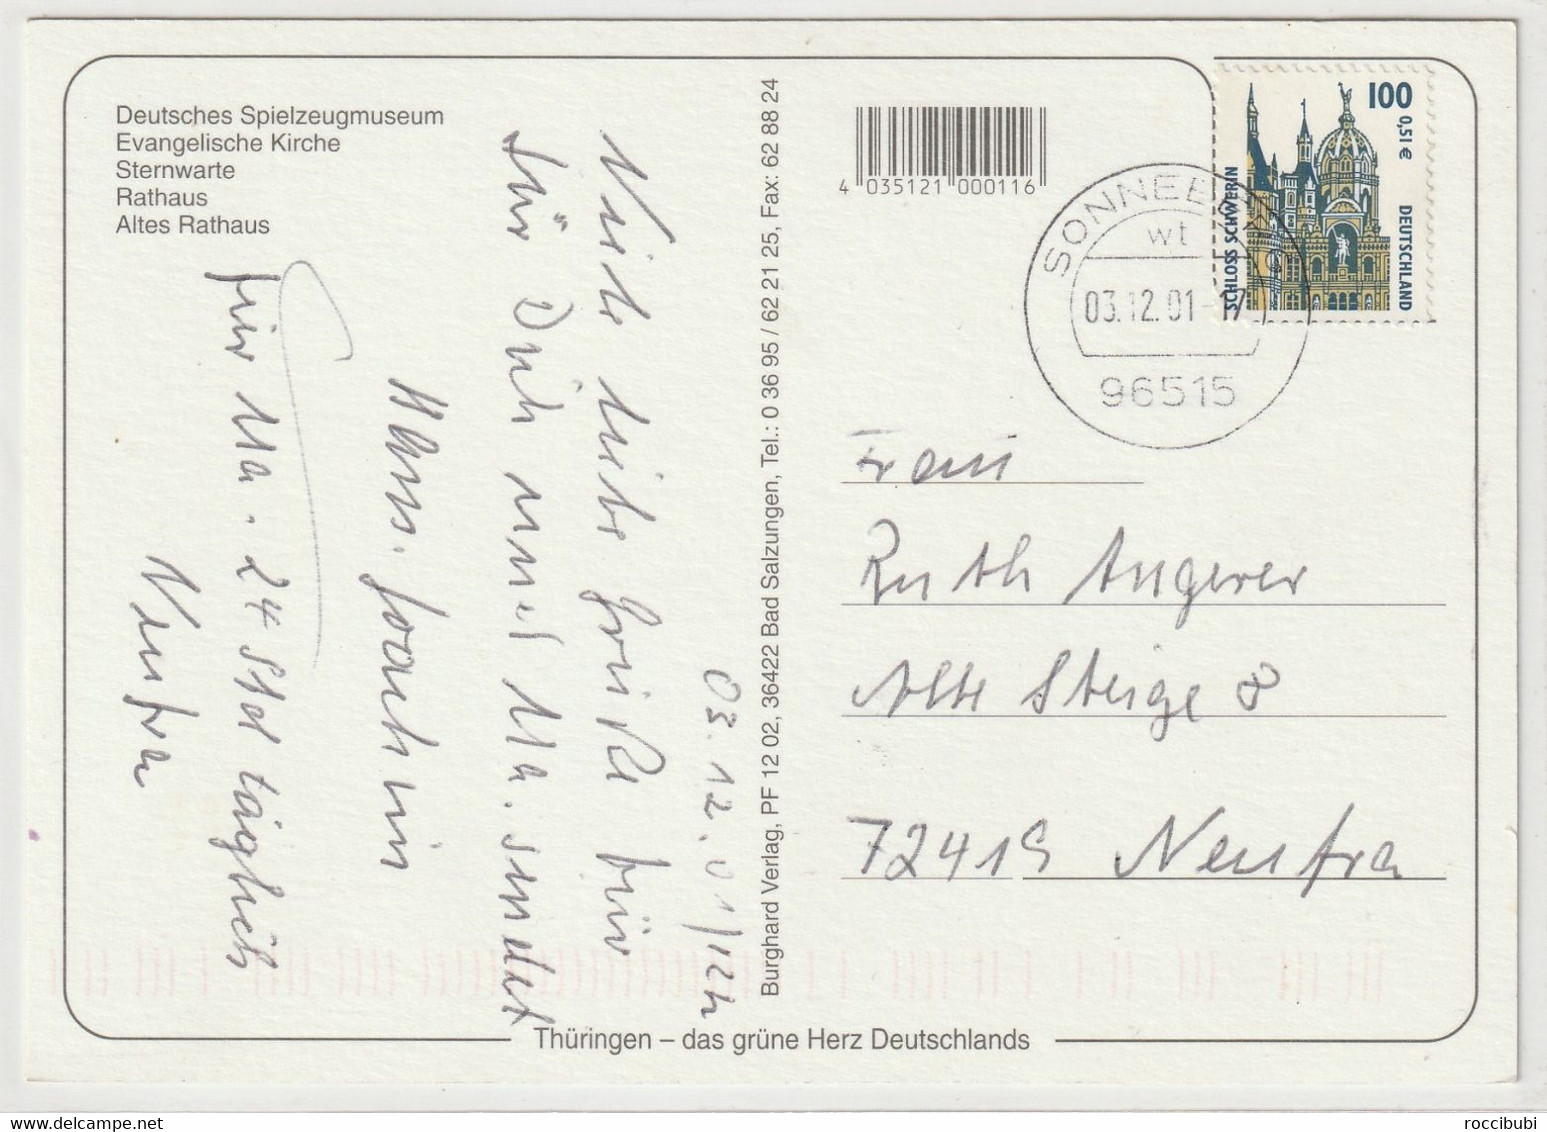 Deutsches Spielzeugmuseum
Evangelische Kirche
Sternwarte
Rathaus
Altes Rathaus
03.12.01/12h
Viele liebe Grüße für
für Dich und Ma. sendet
Hans-Joachim
für Ma. 24 Std täglich
Neufra
Burghard Verlag, PF 12 02, 36422 Bad Salzungen, Tel.: 0 36 95 / 62 21 25, Fax: 62 88 24
4 035121 000116
100
0,51 €
SCHLOSS SCHWERIN
DEUTSCHLAND
SONNEBERG
wt
03.12.01-17
96515
Frau
Ruth Angerer
Alte Steige 8
72419 Neufra
Thüringen – das grüne Herz Deutschlands
www.delcampe.net
roccibubi